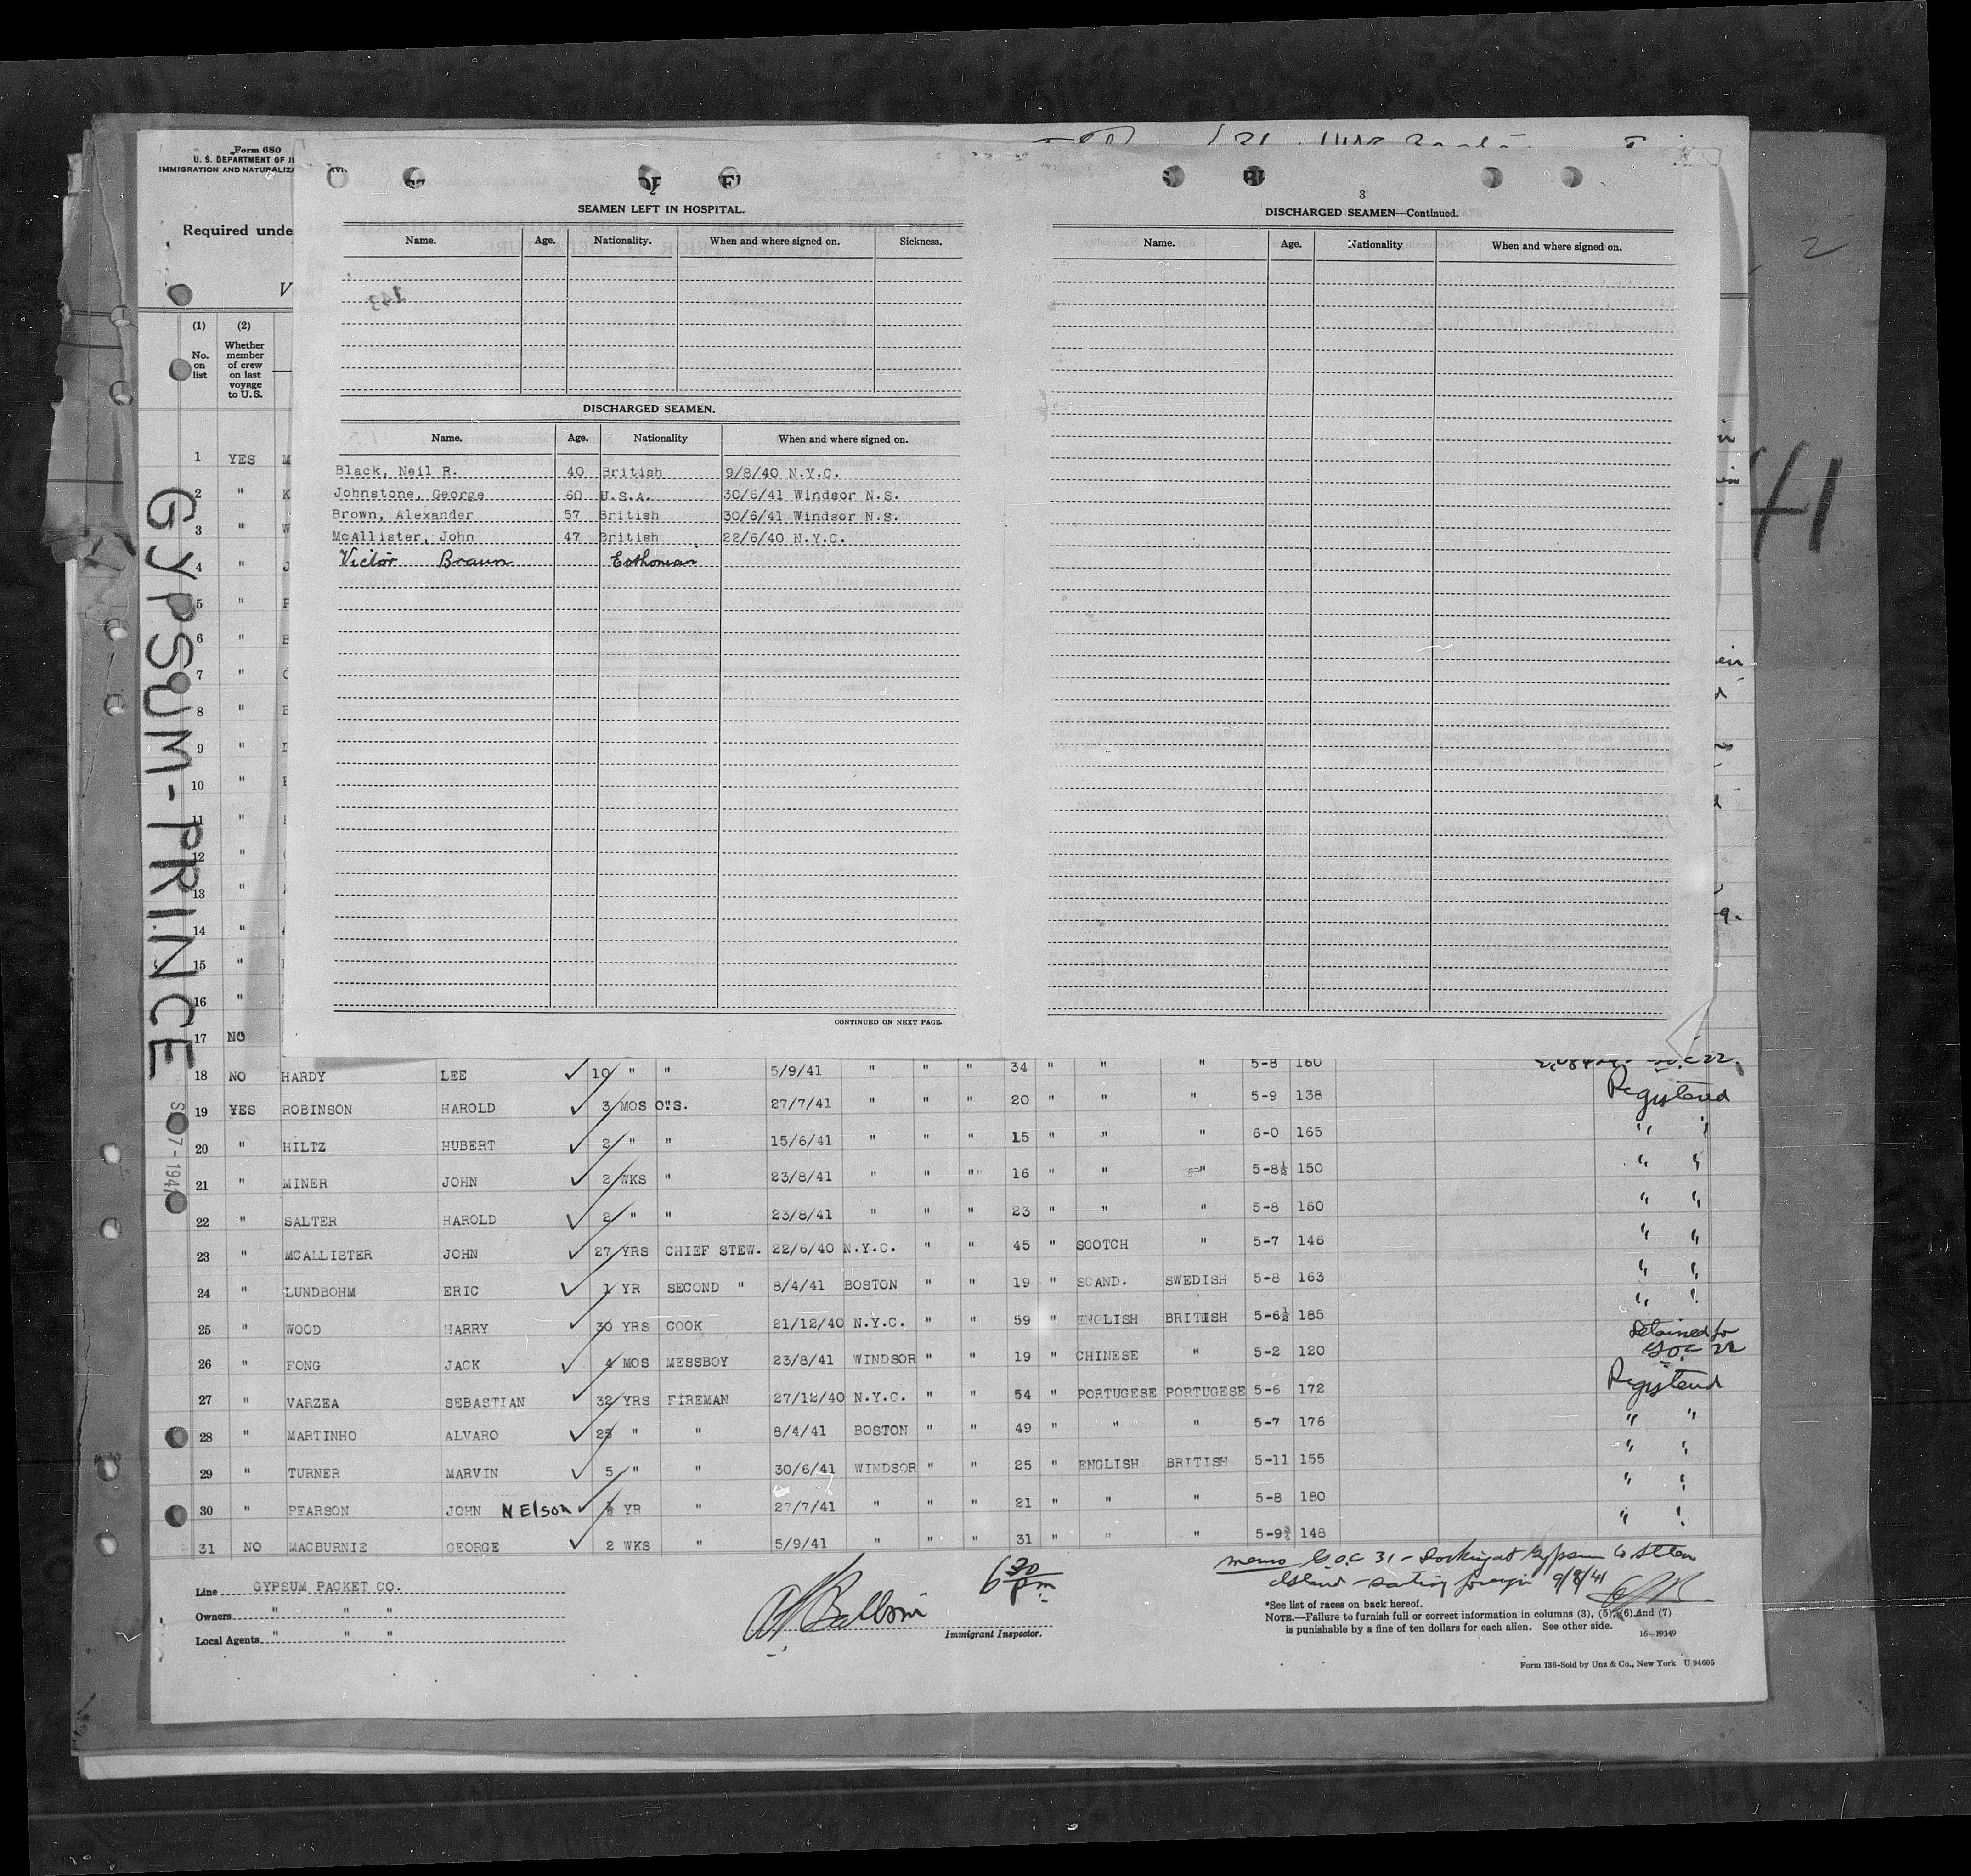 Form 680
U. S. DEPARTMENT OF
IMMIGRATION AND
Required
2
SEAMEN LEFT IN HOSPITAL.
Name. Age. Nationality. When and where signed on. Sickness.
DISCHARGED SEAMEN.
Name. Age. Nationality When and where signed on.
Black, Neil R. 40 British 9/8/40 N.Y.C.
Johnstone, George 60 U.S.A. 30/6/41 Windsor N.S.
Brown, Alexander 57 British 30/6/41 Windsor N.S.
McAllister, John 47 British 22/6/40 N.Y.C.
Victor Braun Esthonian
CONTINUED ON NEXT PAGE.
3
DISCHARGED SEAMEN—Continued.
Name. Age. Nationality When and where signed on.
2
41
GYPSUM-PRINCE
(1) (2)
No. on list
Whether member of crew on last voyage to U.S.
1 YES
2 "
3 "
4 "
5 "
6 "
7 "
8 "
9 "
10 "
11 "
12 "
13 "
14 "
15 "
16 "
17 NO
18 NO HARDY LEE 10 " " 5/9/41 " " " 34 " " " 5-8 160
19 YES ROBINSON HAROLD 3 MOS O.S. 27/7/41 " " " 20 " " " 5-9 138 Registered
20 " HILTZ HUBERT 2 " " 15/6/41 " " " 15 " " " 6-0 165 " "
21 " MINER JOHN 2 WKS " 23/8/41 " " " 16 " " " 5-8½ 150 " "
22 " SALTER HAROLD 2 " " 23/8/41 " " " 23 " " " 5-8 160 " "
23 " MCALLISTER JOHN 27 YRS CHIEF STEW. 22/6/40 N.Y.C. " " 45 " SCOTCH " 5-7 146 " "
24 " LUNDBOHM ERIC 1 YR SECOND " 8/4/41 BOSTON " " 19 " SCAND. SWEDISH 5-8 163 " "
25 " WOOD HARRY 30 YRS COOK 21/12/40 N.Y.C. " " 59 " ENGLISH BRITISH 5-6½ 185 " "
26 " FONG JACK 4 MOS MESSBOY 23/8/41 WINDSOR " " 19 " CHINESE " 5-2 120 Detained for
27 " VARZEA SEBASTIAN 32 YRS FIREMAN 27/12/40 N.Y.C. " " 54 " PORTUGESE PORTUGESE 5-6 172 Registered
28 " MARTINHO ALVARO 25 " " 8/4/41 BOSTON " " 49 " " " 5-7 176 " "
29 " TURNER MARVIN 5 " " 30/6/41 WINDSOR " " 25 " ENGLISH BRITISH 5-11 155 " "
30 " PEARSON JOHN NElson ½ YR " 27/7/41 " " " 21 " " " 5-8 180 " "
31 NO MACBURNIE GEORGE 2 WKS " 5/9/41 " " " 31 " " " 5-9¾ 148 " "
Line GYPSUM PACKET CO.
Owners " " "
Local Agents " " "
6 30 pm
Immigrant Inspector.
memo 31 - Docking at Gypsum Co
Island - foreign 9/8/41
*See list of races on back hereof.
NOTE.—Failure to furnish full or correct information in columns (3), (5), (6) and (7)
is punishable by a fine of ten dollars for each alien. See other side.
16—19349
Form 136-Sold by Unz & Co., New York U 94605